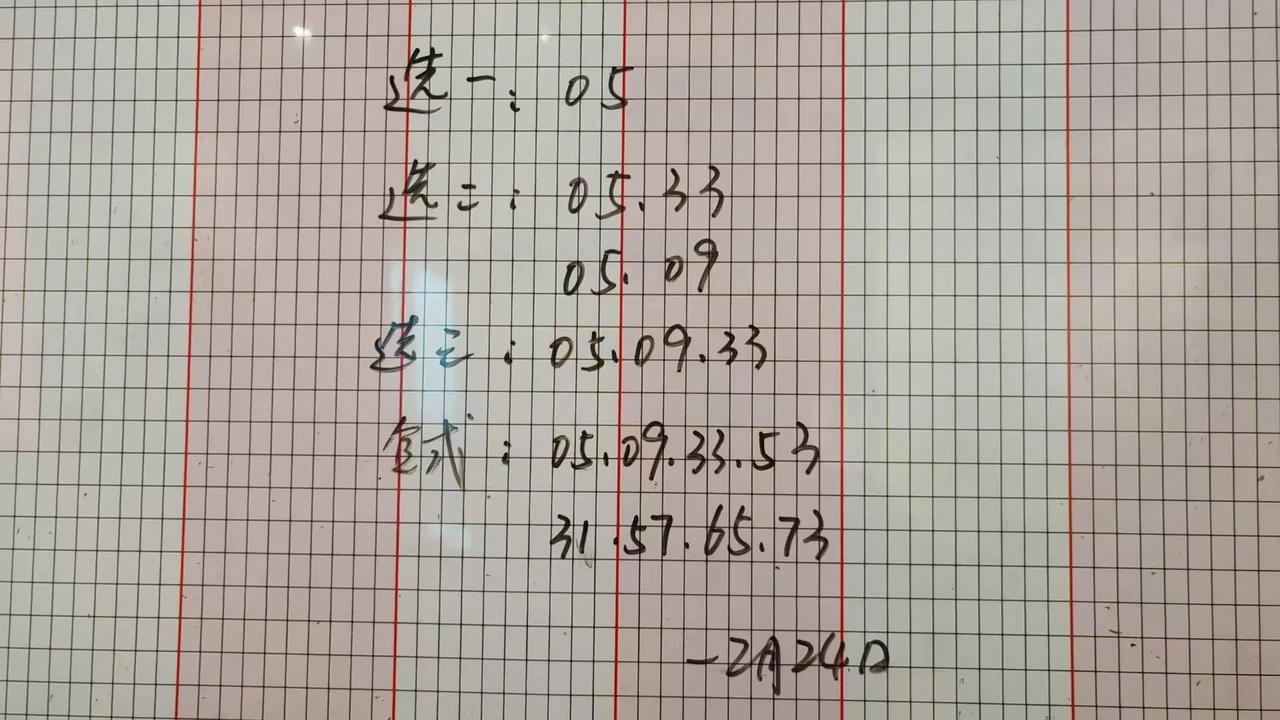 选一:05
选二:05.33
05.09
选三:05.09.33
复式:05.09.33.53
31.57.65.73
-2月24日